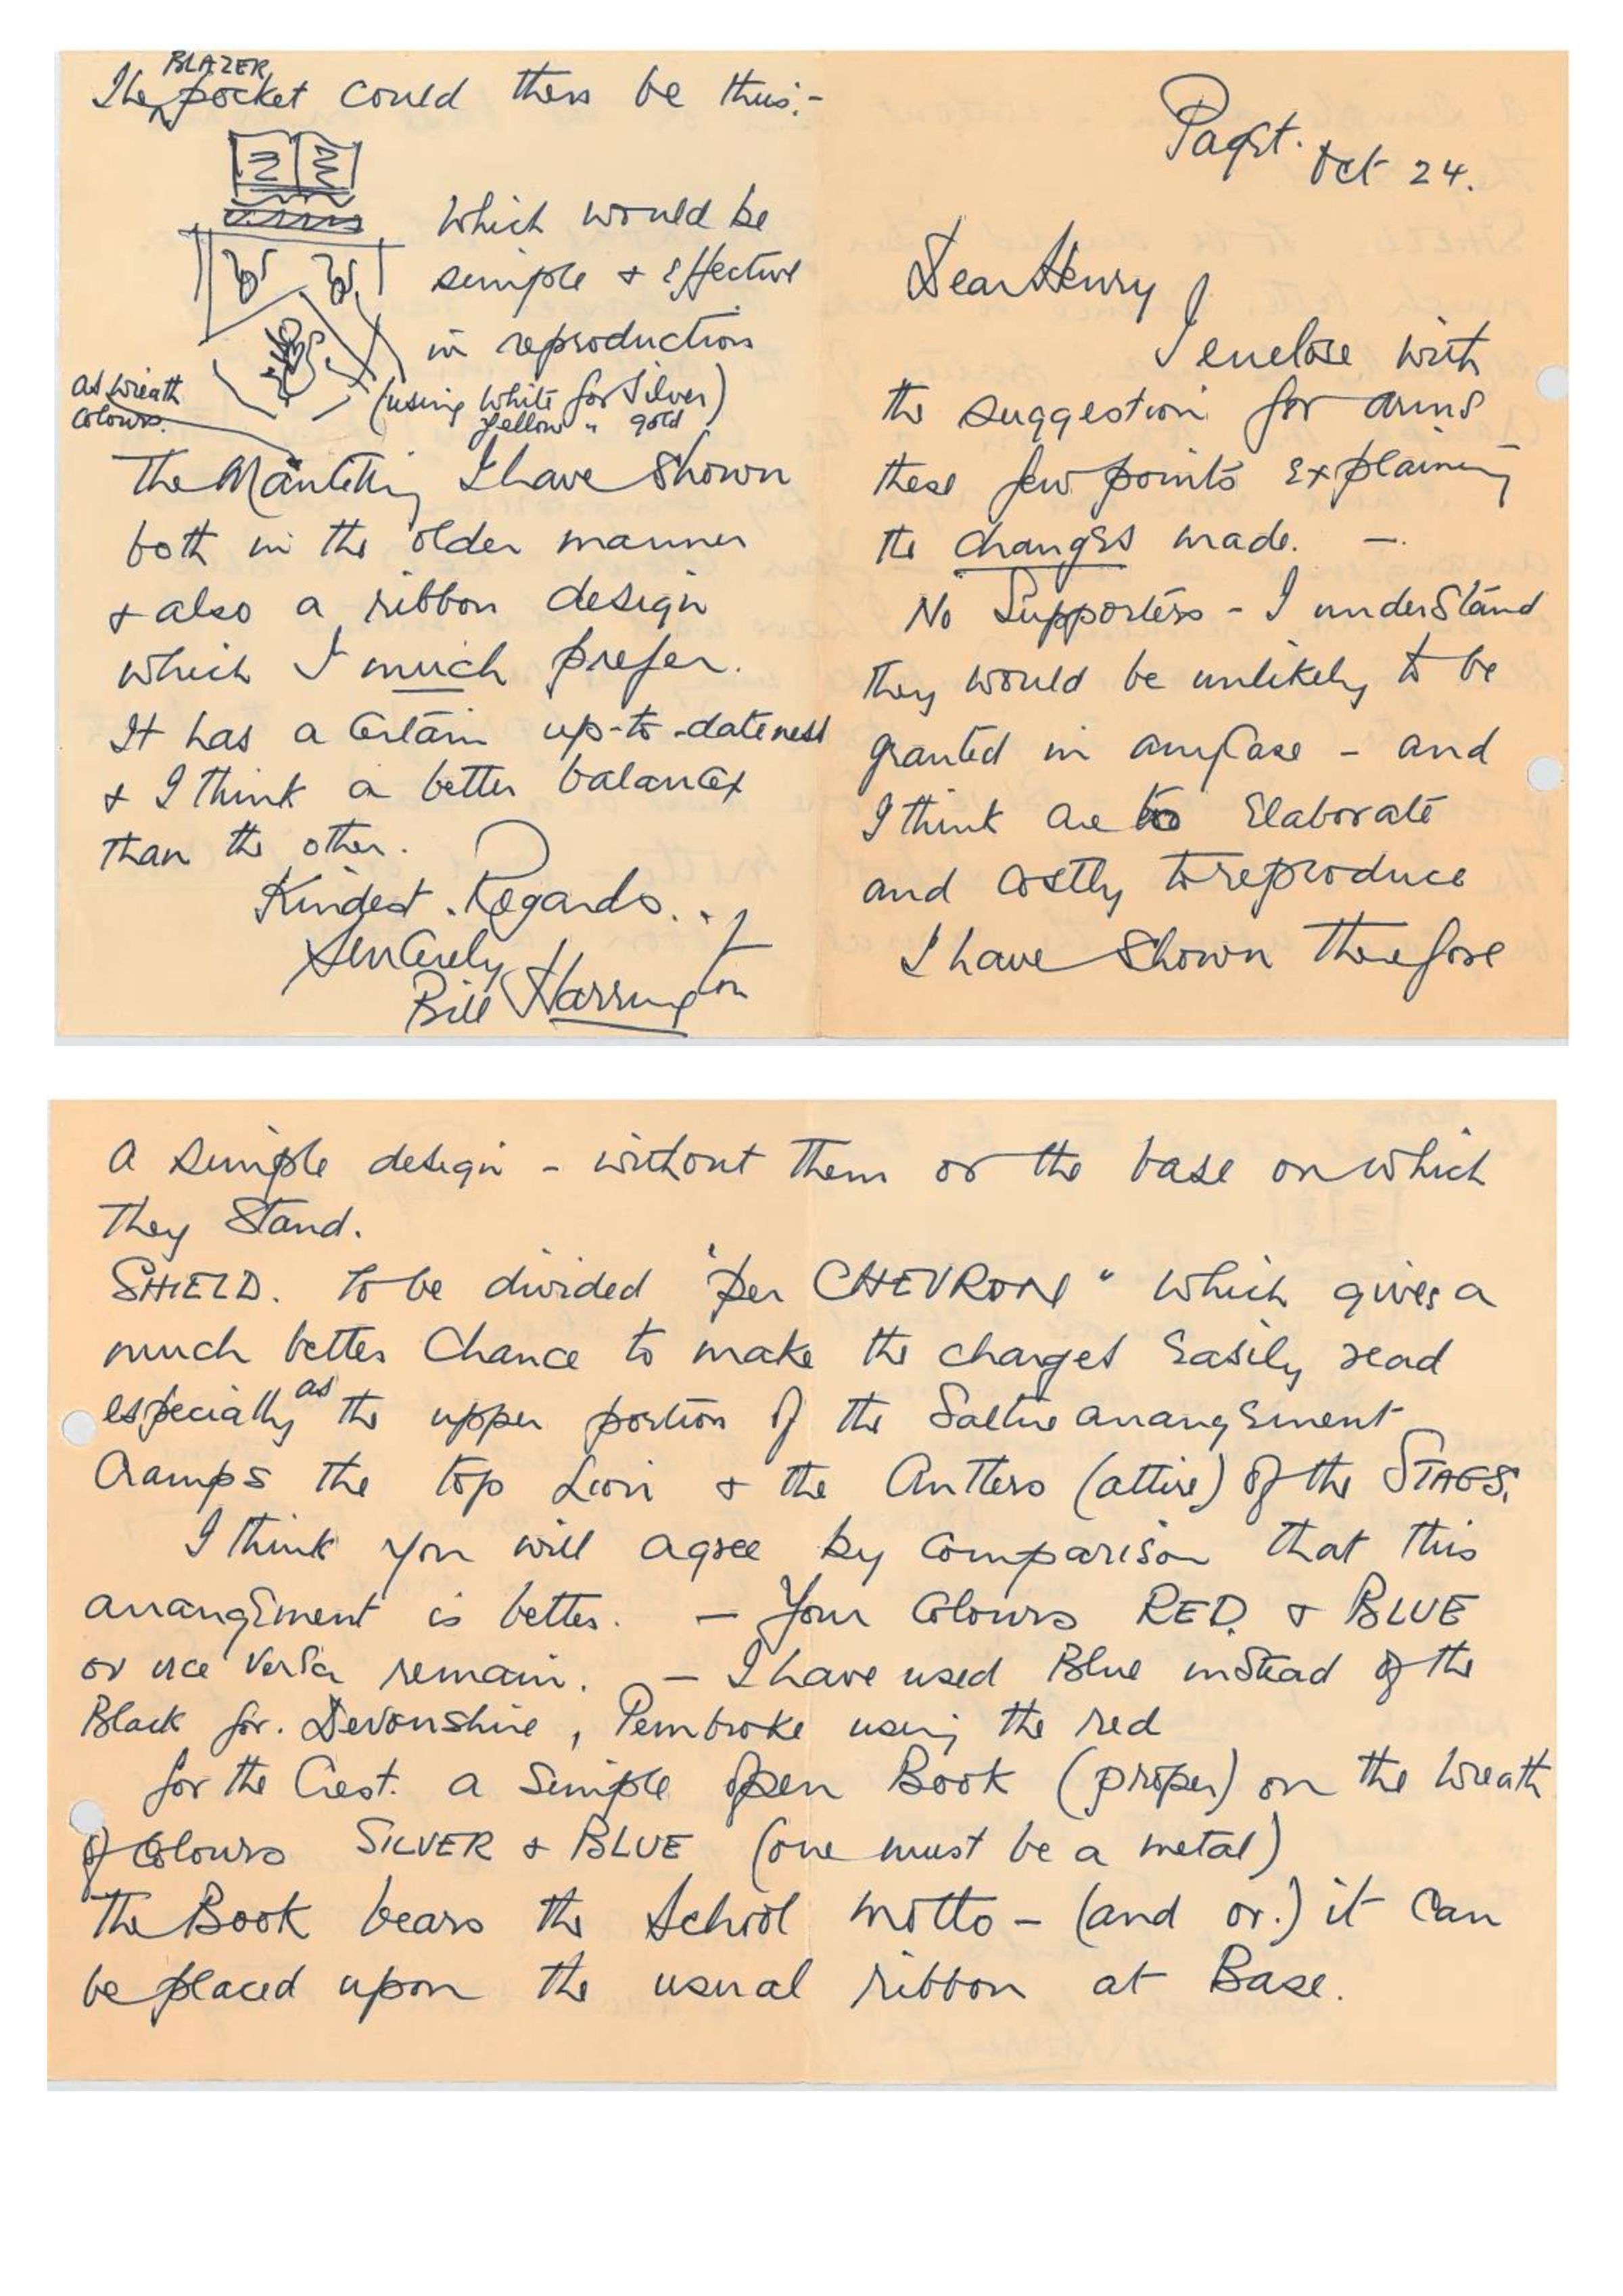 Pagst. Oct 24.
Dear Henry
I enclose with
the suggestion for arms
these few points explaining
the changes made. —.
No Supporters - I understand
they would be unlikely to be
granted in anycase - and
I think are too Elaborate
and costly to reproduce
I have shown therefore
a simple design - without them or the base on which
they Stand.
SHIELD. to be divided "per CHEVRON" which gives a
much better Chance to make the charges Easily read
especially as the upper portion of the Saltire arrangement
Cramps the top Lion & the Antlers (attire) of the STAGS.
I think you will agree by comparison that this
arrangement is better. — Your Colours RED & BLUE
or vice versa remain. — I have used Blue instead of the
Black for. Devonshire, Pembroke using the red
for the Crest. a simple open Book (proper) on the Wreath
of Colours SILVER & BLUE (one must be a metal)
The Book bears the School motto - (and or.) it can
be placed upon the usual ribbon at Base.
The BLAZER pocket could then be thus:-
which would be
simple & effective
in reproduction
(using White for Silver)
Yellow " gold
as wreath
colours.
The Mantling I have shown
both in the older manner
& also a ribbon design
which I much prefer.
It has a Certain up-to-dateness
& I think a better balance
than the other.
Kindest Regards..
Sincerely
Bill Harrington